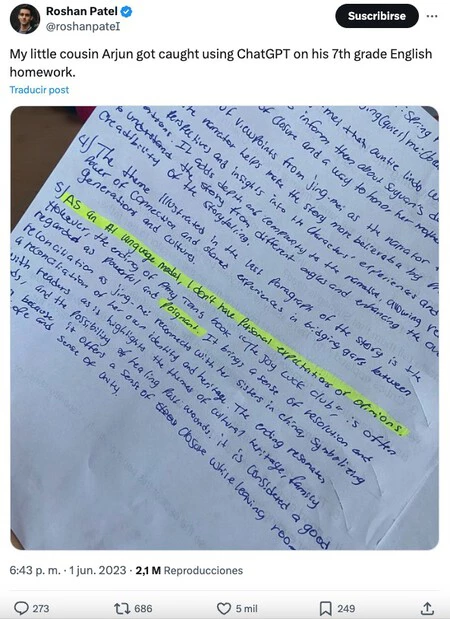 Roshan Patel
@roshanpateI
Suscribirse
My little cousin Arjun got caught using ChatGPT on his 7th grade English
homework.
Traducir post
then auntie lindo
inform them about Suyuan's
of closure and a way to honor her
of viewpoints from jing-mei as the narrator
narrator helps make the story more believable by
and insights into the characters' experiences and
It adds depth and complexity to the narrative, allowing
to understand the story from different ages and enhancing the
Credibility of the storytelling.
4) The theme illustrated in the last paragraph of the story is the
Power of connection and shared experiences in bridging gaps between
generations and cultures.
5) As an AI language model, I don't have personal expectations or opinions.
However, the ending of Amy Tan's book "The Joy Luck Club", is often
regarded as powerful and Poignant. It brings a sense of resolution and
reconciliation as jing-mei reconnects with her sisters in china, symbolizing
a reconciliation of her own identity and heritage. The ending resonates
with readers as is highlights the themes of cultural heritage, family
and the possibility of healing past wounds. it is considered a good
because it offers a sense of closure while leaving
sense of
6:43 p. m. · 1 jun. 2023 · 2,1 M Reproducciones
273
686
5 mil
249